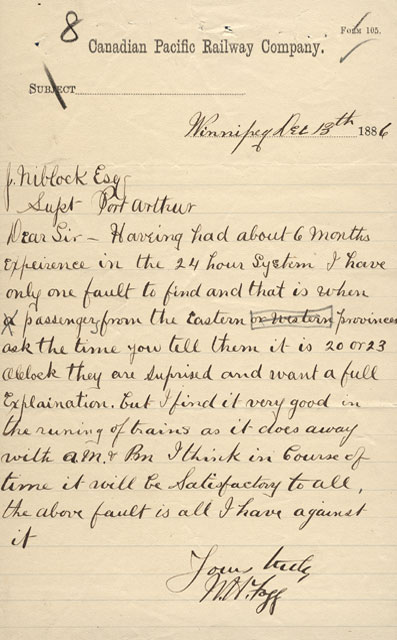 8
Form 105.
Canadian Pacific Railway Company.
Subject
Winnipeg Dec 13th 1886
J. Niblock Esq
Supt Port Arthur
Dear Sir – Haveing had about 6 months
Expeirence in the 24 hour System I have
only one fault to find and that is when
passengers from the Eastern or Western provinces
ask the time you tell them it is 20 or 23
Oclock they are Suprised and want a full
Explaination. but I find it very good in
the runing of trains as it does away
with a.m. & Pm I think in Course of
time it will be Satisfactory to all,
the above fault is all I have against
it
Yours truly